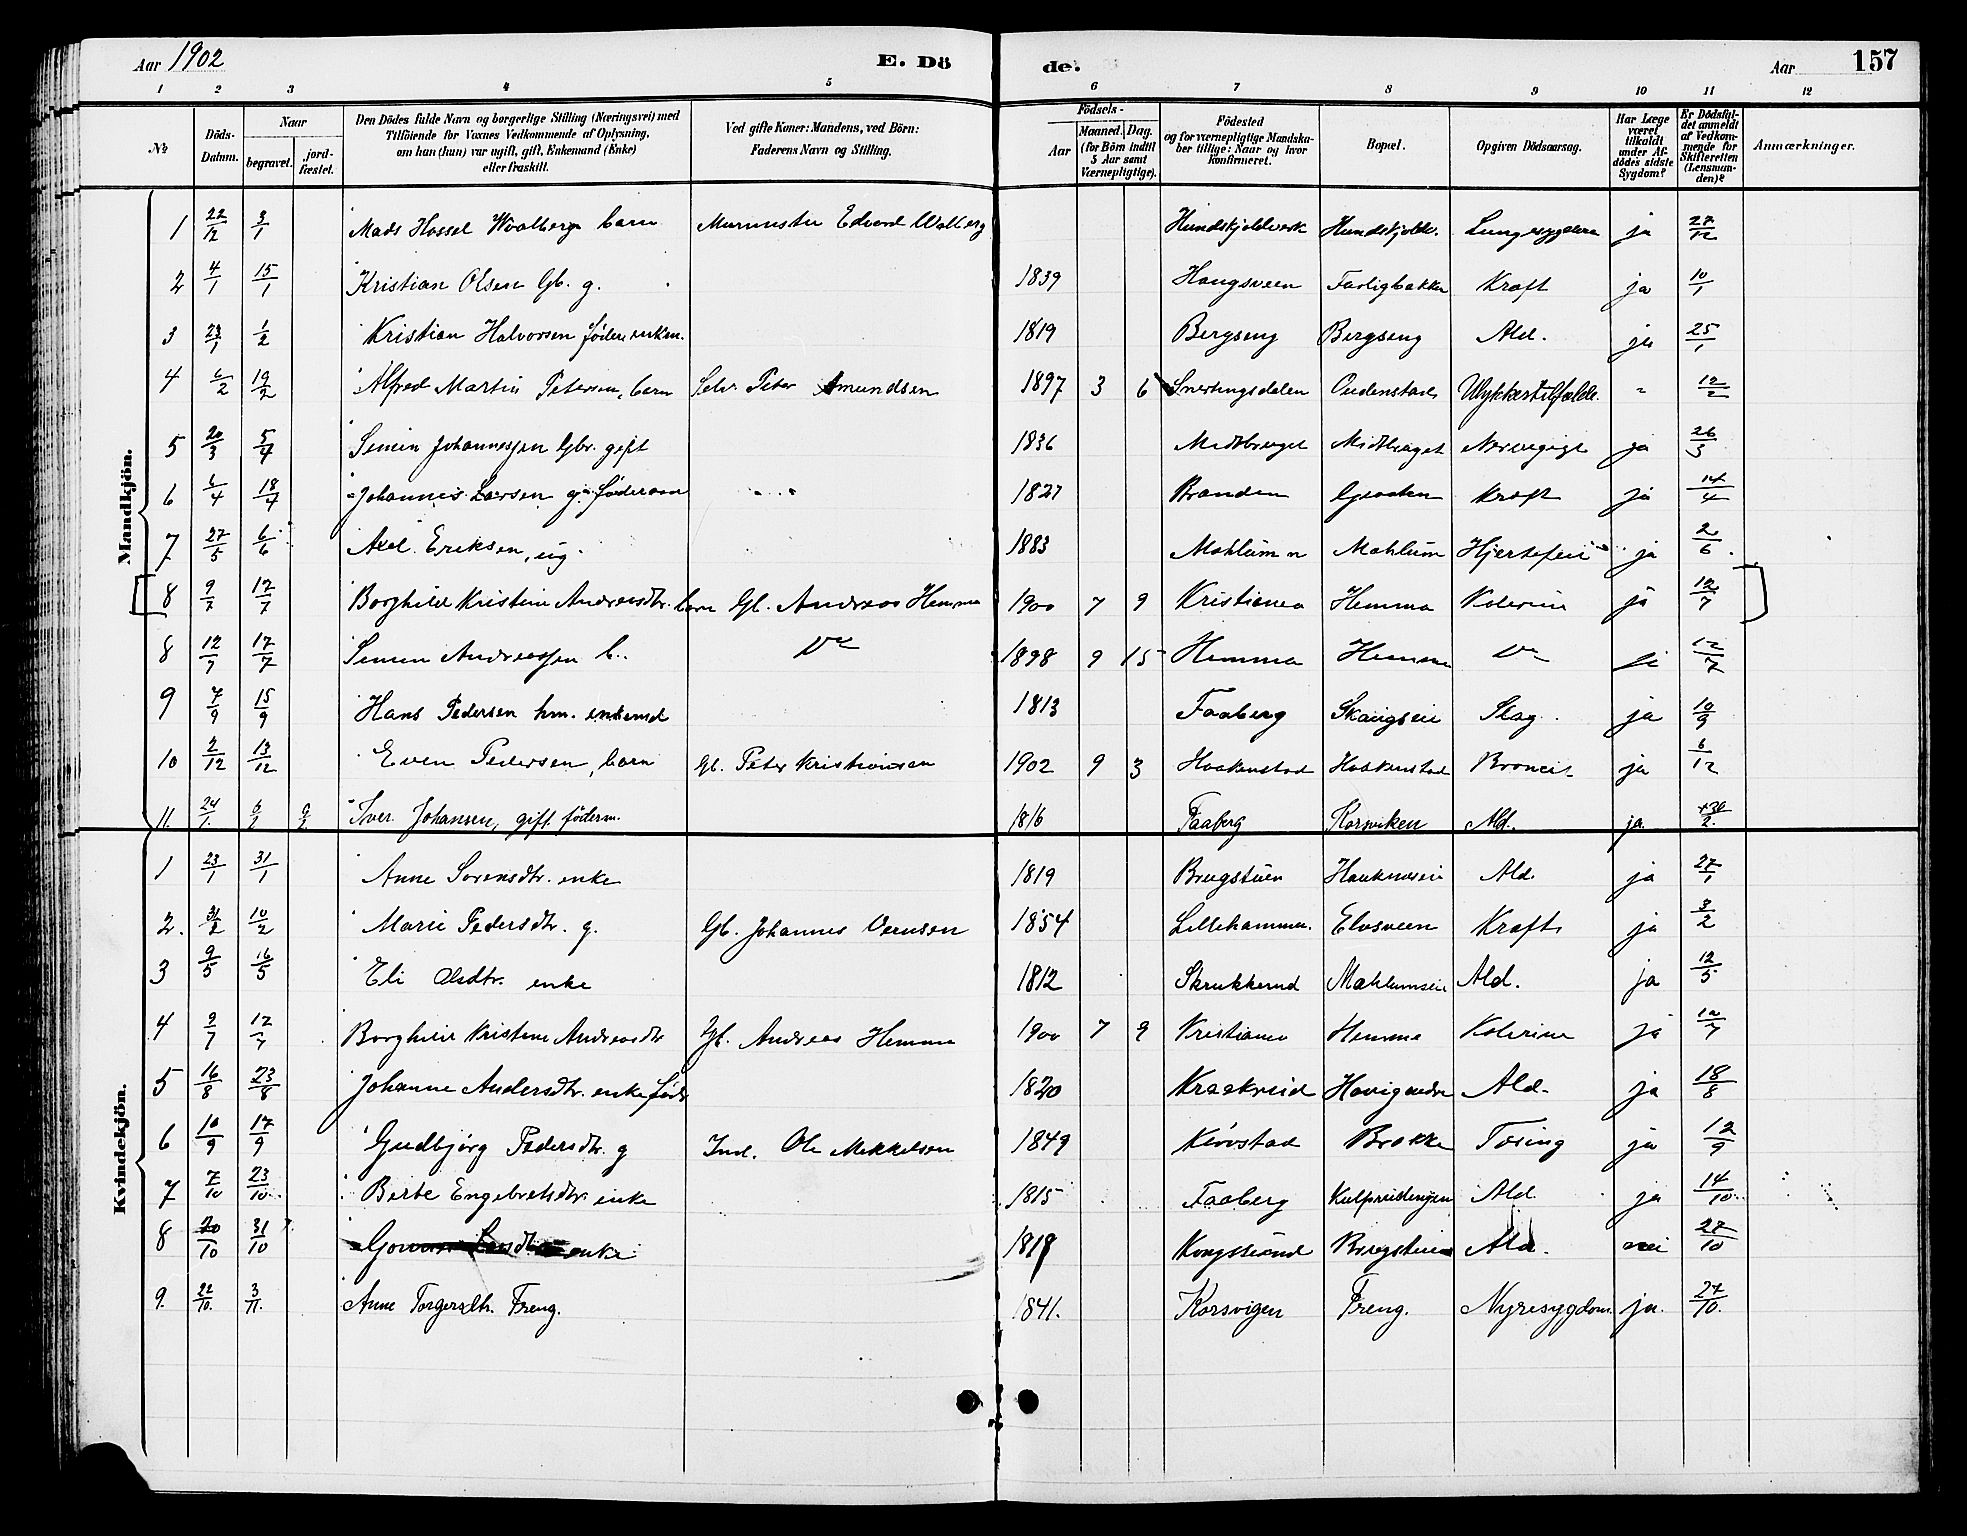 Aar 1902 E. Döde. Aar 157
1 2 3 4 5 6 7 8 9 10 11 12
No
Döds-Datum.
Naar begravet. jordfæstet.
Den Dödes fulde Navn og borgerlige Stilling (Næringsvei) med Tilföiende for Voxnes Vedkommende af Oplysning, om han (hun) var ugift, gift, Enkemand (Enke) eller fraskilt.
Ved gifte Koner: Mandens, ved Börn: Faderens Navn og Stilling.
Födsels-
Aar Maaned. Dag. (for Börn indtil 5 Aar samt Værnepligtige).
Födested og for værnepligtige Mandskaber tillige: Naar og hvor konfirmeret.
Bopæl.
Opgiven Dödsaarsag.
Har Læge været tilkaldt under Afdødes sidste Sygdom?
Er Dödsfaldet anmeldt af Vedkommende for Skifteretten (Lensmanden)?
Anmærkninger.
Mandkjön.
1 22/12 3/1 Mads Hassel Woalberg barn Murmester Edvard Walberg Hundskjoldverk Hundskjoldv. Lungesygdom ja 27/12
2 4/1 15/1 Kristian Olsen Gb. g. 1839 Haugsveen Farligbakken Kræft ja 10/1
3 23/1 1/2 Kristian Halvorsen föder. enkem. 1819 Bergseng Bergseng Ald. ja 25/1
4 6/2 19/2 Alfred Martin Petersen, barn Selv. Peter Amundsen 1897 3 6 Snertingsdalen Oudenstad Ulykkestilfælde. - 12/2
5 20/3 5/4 Simen Johannessen Gbr. gift 1836 Midtbruget Midtbruget ja 26/3
6 6/4 18/4 Johannes Larsen g. föderaa 1827 Branden Kræft ja 14/4
7 27/5 6/6 Axel Eriksen, ug. 1883 Mæhlum Mæhlum Hjertefeil ja 2/6
[8 9/7 17/7 Borghild Kristine Andreasdtr. barn Gb. Andreas Hemma 1900 7 9 Kristiania Hemma Kolerine ja 12/7]
8 12/7 17/7 Simen Andreassen b. Do 1898 9 15 Hemma Hemma Do ja 12/7
9 7/9 15/9 Hans Pedersen hm. enkemd 1813 Faaberg Skaugseie Slag ja 10/9
10 2/12 13/12 Even Pedersen, barn Gb. Peter Kristiansen 1902 9 3 Haakenstad Haakenstad Broncit. ja 6/12
11. 24/1. Iver Johansen, gift föderm. 1816 Faaberg Korsviken Ald. ja.
Kvindekjön.
1 23/1 31/1 Anne Sorensdtr. enke 1819 Brugstuen Ald. ja 27/1
2. 10/2 Marie Pedersdtr. g. Gb. Johannes Evensen 1854 Lillehammer. Elvsveen Kræft ja 3/2
3 9/5 16/5 Eli Olsdtr. enke 1812 Skrukkerud Mæhlumseie Ald. ja 12/5
4 9/7 17/7 Borghild Kristine Andreasdtr Gb. Andreas Hemma 1900 7 9 Kristiania Hemma Kolerine ja 12/7
5 16/8 23/8 Johanne Andersdtr. enke föder 1820 Kraakvind Ald. ja 18/8
6 10/9 17/9 Gudbjörg Pedersdtr. g Ind. Ole Mikkelsen 1849 Kirkestad Brokke Tæring ja 12/9
7 7/10 23/10 Berte Engebretsdtr enke 1815 Faaberg Ald ja 14/10
8 20/10 31/10 enke 1819 Brugstuen Ald. nei 27/10
9. 22/10. 3/11. Anne Torgersdtr. Freng. 1841. Korsvigen Freng. Nyresygdom. ja. 27/10.